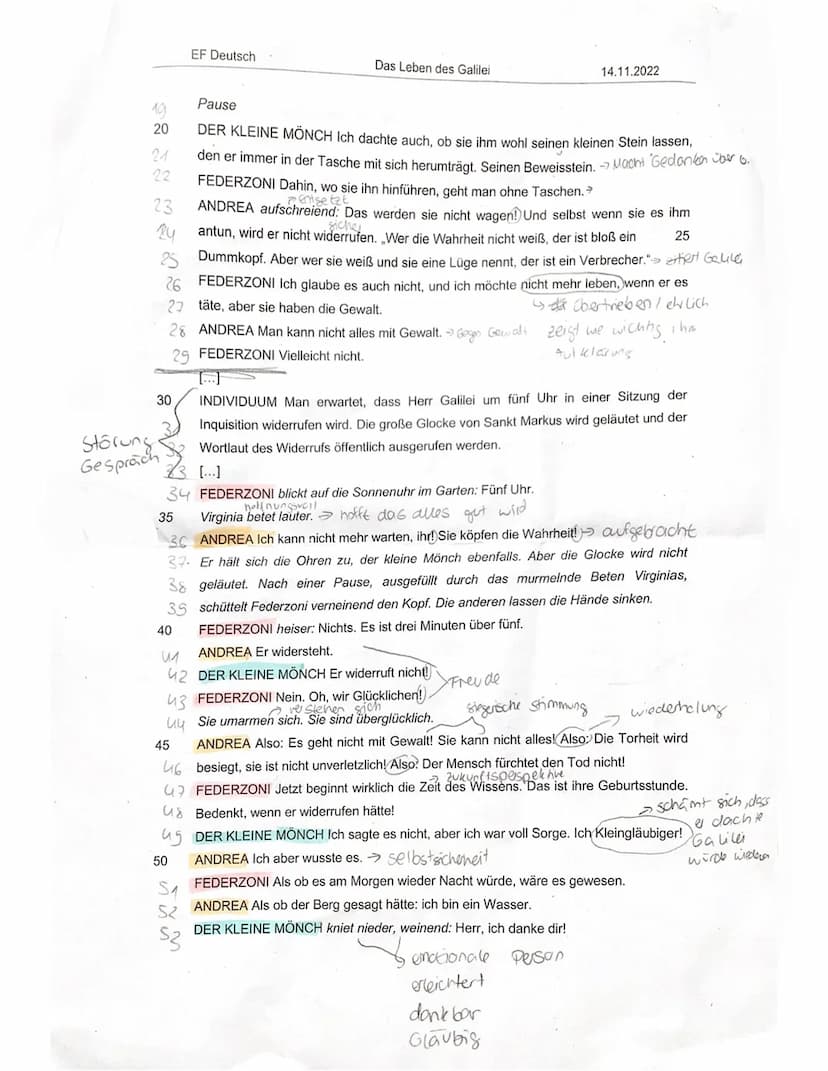 EF Deutsch
Das Leben des Galilei
14.11.2022
19 Pause
20 DER KLEINE MÖNCH Ich dachte auch, ob sie ihm wohl seinen kleinen Stein lassen,
21 den er immer in der Tasche mit sich herumträgt. Seinen Beweisstein. → Macht Gedanken über G.
22 FEDERZONI Dahin, wo sie ihn hinführen, geht man ohne Taschen.
→ entsetzt
23 ANDREA aufschreiend: Das werden sie nicht wagen! Und selbst wenn sie es ihm
sicher
24 antun, wird er nicht widerrufen. „Wer die Wahrheit nicht weiß, der ist bloß ein 25
25 Dummkopf. Aber wer sie weiß und sie eine Lüge nennt, der ist ein Verbrecher.“ → zitiert Galilei
26 FEDERZONI Ich glaube es auch nicht, und ich möchte nicht mehr leben, wenn er es
27 täte, aber sie haben die Gewalt. ↳ übertrieben / ehrlich
28 ANDREA Man kann nicht alles mit Gewalt. → Gegen Gewalt zeigt wie wichtig ihm
29 FEDERZONI Vielleicht nicht. Aufklärung
[...]
30 INDIVIDUUM Man erwartet, dass Herr Galilei um fünf Uhr in einer Sitzung der
31 Inquisition widerrufen wird. Die große Glocke von Sankt Markus wird geläutet und der
Störung Gespräch
32 Wortlaut des Widerrufs öffentlich ausgerufen werden.
33 [...]
34 FEDERZONI blickt auf die Sonnenuhr im Garten: Fünf Uhr.
hoffnungsvoll
35 Virginia betet lauter. → hofft das alles gut wird
36 ANDREA Ich kann nicht mehr warten, ihr! Sie köpfen die Wahrheit! → aufgebracht
37 Er hält sich die Ohren zu, der kleine Mönch ebenfalls. Aber die Glocke wird nicht
38 geläutet. Nach einer Pause, ausgefüllt durch das murmelnde Beten Virginias,
39 schüttelt Federzoni verneinend den Kopf. Die anderen lassen die Hände sinken.
40 FEDERZONI heiser: Nichts. Es ist drei Minuten über fünf.
41 ANDREA Er widersteht.
42 DER KLEINE MÖNCH Er widerruft nicht!
Freude
43 FEDERZONI Nein. Oh, wir Glücklichen!
→ verstehen sich
siegerische Stimmung
→ wiederholung
44 Sie umarmen sich. Sie sind überglücklich.
45 ANDREA Also: Es geht nicht mit Gewalt! Sie kann nicht alles! Also: Die Torheit wird
46 besiegt, sie ist nicht unverletzlich! Also: Der Mensch fürchtet den Tod nicht!
→ zukunftsperspektive
47 FEDERZONI Jetzt beginnt wirklich die Zeit des Wissens. Das ist ihre Geburtsstunde.
48 Bedenkt, wenn er widerrufen hätte!
→ schämt sich, dass er dachte Galilei würde
49 DER KLEINE MÖNCH Ich sagte es nicht, aber ich war voll Sorge. Ich Kleingläubiger!
50 ANDREA Ich aber wusste es. → selbstsicherheit
51 FEDERZONI Als ob es am Morgen wieder Nacht würde, wäre es gewesen.
52 ANDREA Als ob der Berg gesagt hätte: ich bin ein Wasser.
53 DER KLEINE MÖNCH kniet nieder, weinend: Herr, ich danke dir!
↳ emotionale Person
erleichtert
dankbar
Gläubig